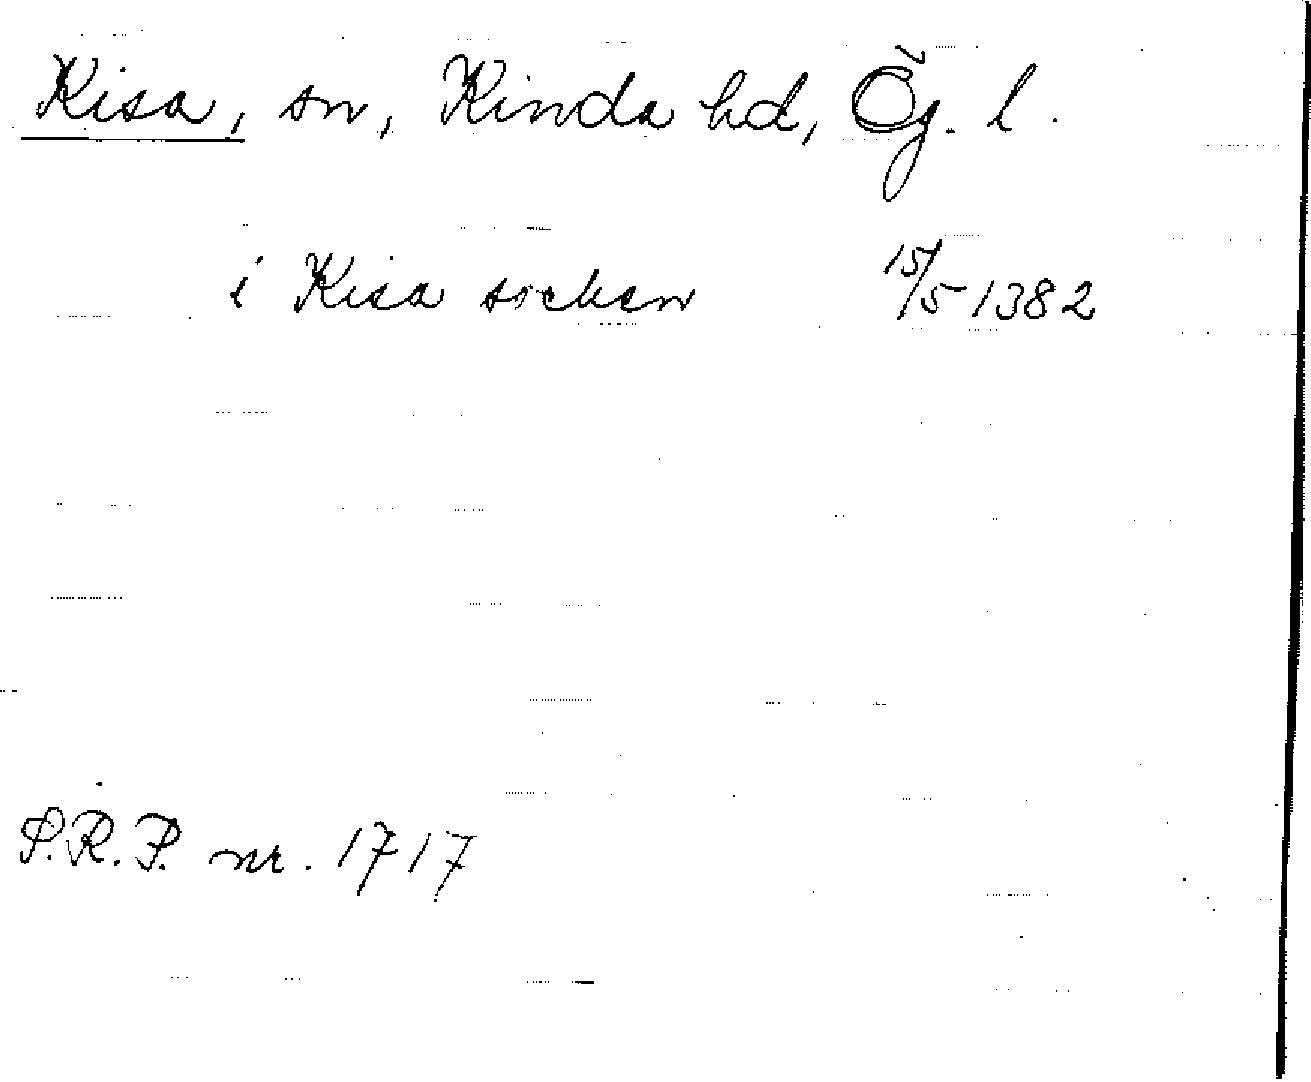 Kisa, sn, Kinda hd, Ög. l.
i Kisa socken 15/5 1382
S.R.P. nr. 1717